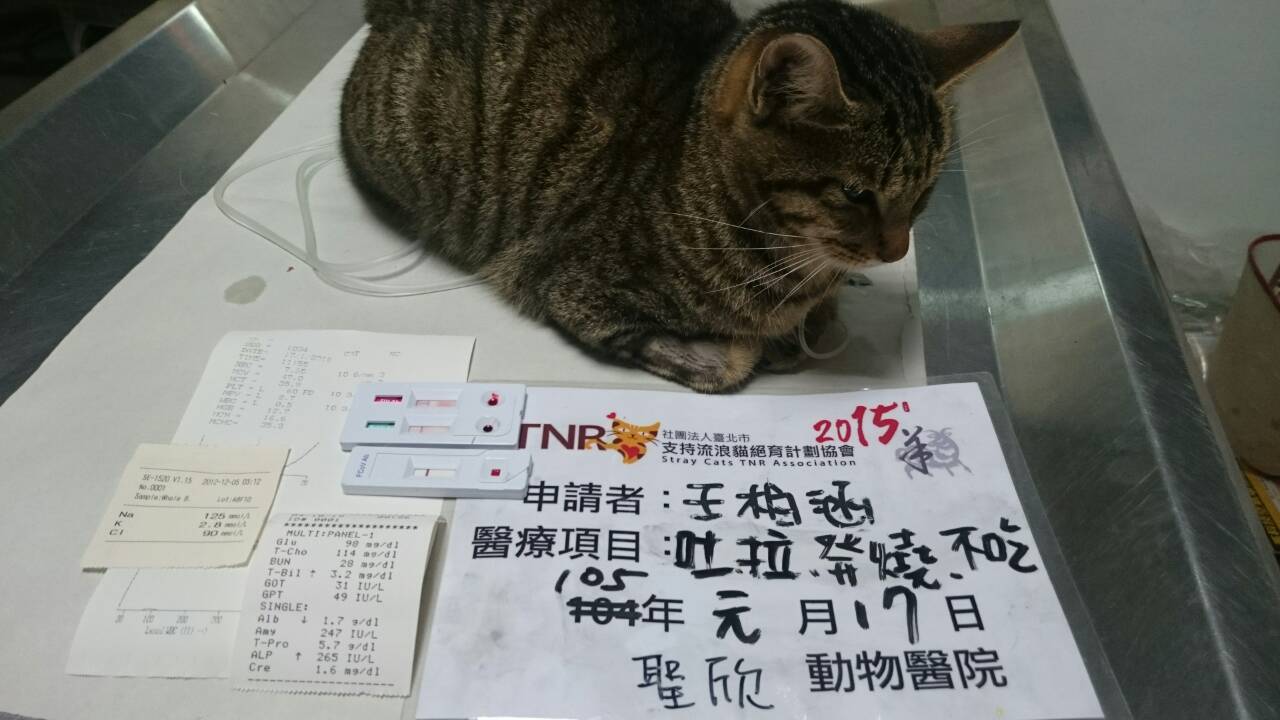 SE-1520 V1.15 2012-12-05 03:12
No.0001
Sample:Whole B. Lot:ABF10
Na 125 mmol/L
K 2.8 mmol/L
Cl 90 mmol/L
ID# 0001
MULTI:PANEL-1
Glu 98 mg/dl
T-Cho 114 mg/dl
BUN 28 mg/dl
T-Bil ↑ 3.2 mg/dl
GOT 31 IU/L
GPT 49 IU/L
SINGLE:
Alb ↓ 1.7 g/dl
Amy 247 IU/L
T-Pro 5.7 g/dl
ALP ↑ 265 IU/L
Cre 1.6 mg/dl
FCoV Ab
TNR
社團法人臺北市
支持流浪貓絕育計劃協會
Stray Cats TNR Association
2015'
申請者:王柏涵
醫療項目:吐拉.發燒.不吃
105
104年 元 月 17 日
聖欣 動物醫院